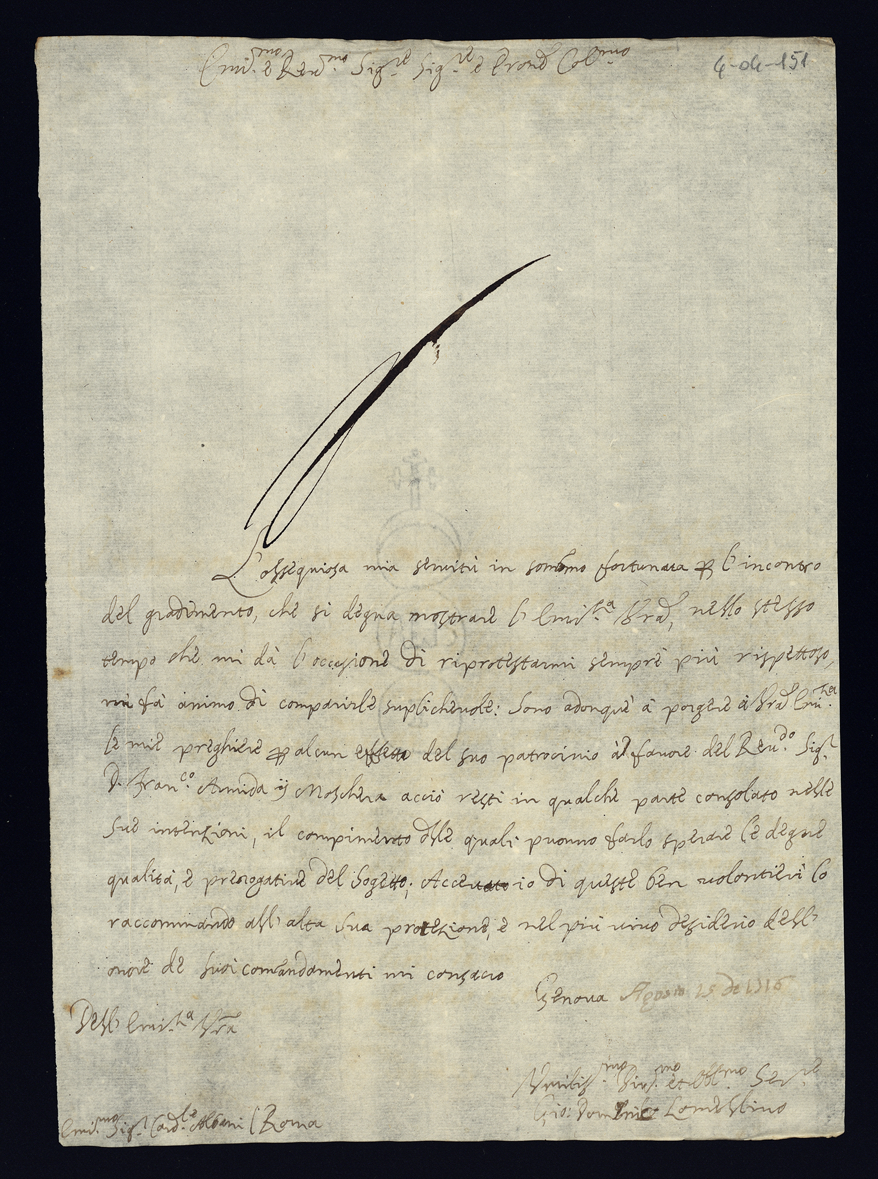 Emi.mo e Reu.mo Sig.re Sig.re e Prone Col.mo
4-04-151
L'ossequiosa mia seruitù in sommo fortunata per l'incontro
del gradimento, che si degna mostrare l'Emi.za Vra, nello stesso
tempo che mi dà l'occasione di riprotestarmi sempre più rispettoso,
mi fà animo di comparirle supplicheuole: Sono adonque à porgere à Vra Emi.za
le mie preghiere per alcun effetto del suo patrocinio à fauore del Reu.do Sig.r
D. Fran.co Moschera acciò resti in qualche parte consolato nelle
sue intenzioni, il compimento delle quali puonno farlo sperare le degne
qualità, e prerogatiue del Sogetto; io di queste ben volontieri lo
raccommando all'alta sua protezione, e nel più viuo desiderio dell'
onore de suoi comandamenti mi consacro
Genoua Agosto 25 de 1716
Dell'Emi.za Vra
Vmiliss.mo Diu.mo et Obl.mo Ser.re
Gio: Domenico Lomellino
Emi.mo Sig.r Card.le Albani / Roma